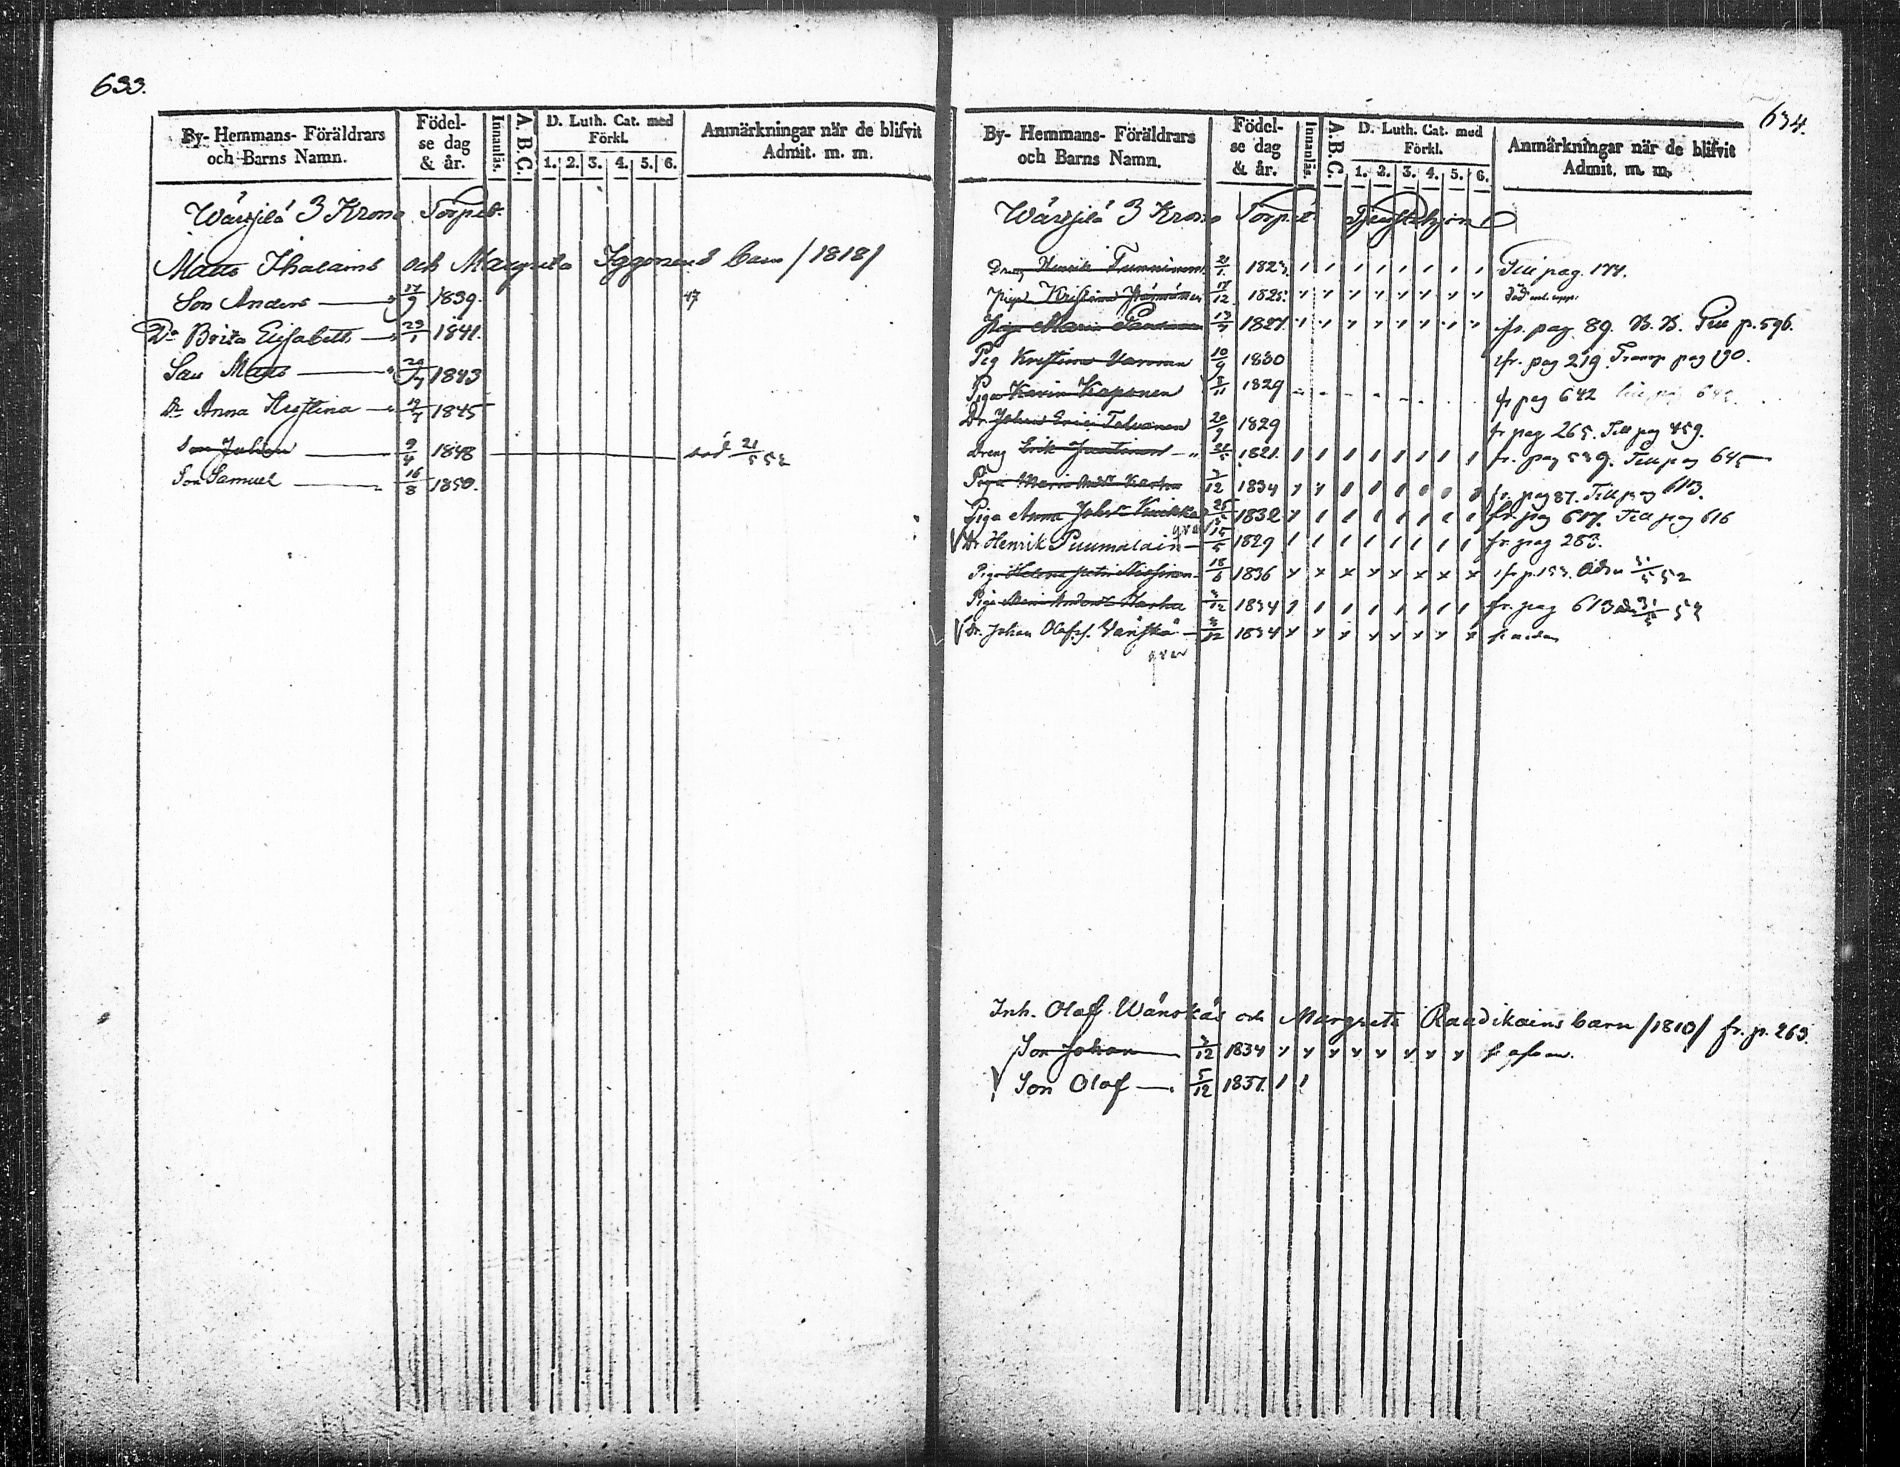 633.
By- Hemmans- Föräldrars och Barns Namn.
Födel- se dag & år.
Innanläs.
A. B. C.
D. Luth. Cat. med Förkl.
1. 2. 3. 4. 5. 6.
Anmärkningar när de blifvit Admit. m. m.
Wärtsilä 3 Krono Torpet.
Matts Ihalains och Margreta Iggonens barn /1818/
Son Anders 17/9 1839. 47
Dr Brita Elisabeth 23/1 1841.
Son Matts 1843
Dr Anna Kristina 1845
Son Johan 9/4 1848 död 21/5 52
Son Samuel 16/8 1850.
634.
By- Hemmans- Föräldrars och Barns Namn.
Födel- se dag & år.
Innanläs.
A. B. C.
D. Luth. Cat. med Förkl.
1. 2. 3. 4. 5. 6.
Anmärkningar när de blifvit Admit. m. m.
Wärtsilä 3 Krono Torpet Tjenstehjon
Dreng Henrik Tumminen 21/1 1823. Till pag. 174.
Piga Kristina 17/12 1825. död
Piga Maria 1827. fr. pag. 89. N. B. Till p. 596.
Pig Kristina 10/9 1830 fr. pag 219. Transp pag 190.
Piga Karin Kaponen 8/11 1829 fr pag 642
Dr Johan Eric Talvanen 20/9 1829 fr pag 265. Till pag 459.
Dreng Erik 1821. fr. pag 539. Till pag 645
Piga Maria And.dr Karhu 3/12 1834 fr. pag 87. Till pag 613.
Piga Anna Joh.dr 25/5 1832 fr. pag 617. Till pag 616
Dr Henrik Puumalain 15/5 1829 fr. pag 283.
Piga Helena Petri 18/6 1836 fr p. 153. 31/5 52
Piga Maria Anders.dr Karhu 3/12 1834 fr. pag 613 31/5 52
Dr. Johan Olofss. Vänskä 3/12 1834
Inh. Olof Wänskäs och Margreta Raadikains barn /1810/ fr. p. 263.
Son Johan 3/12 1834
Son Olof 5/12 1837.